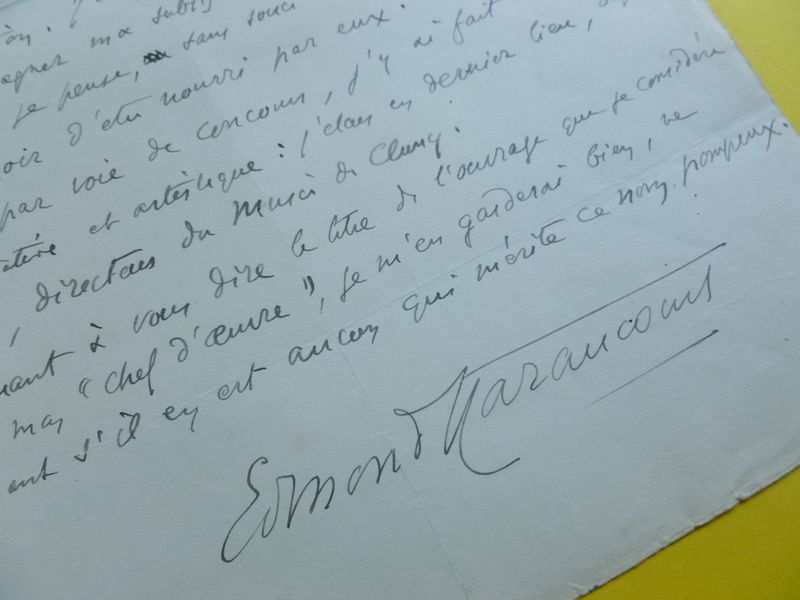 agner ma subsis
je pense, sans souci
oir d'être nourri par eux.
par voie de concours, j'y ai fait
et artistique : j'étais en dernier lieu,
, directeur du Musée de Cluny.
uant à vous dire le titre de l'ouvrage que je considère
mon "chef d'œuvre", je m'en garderai bien, ne
ant s'il en est aucun qui mérite ce nom pompeux.
Edmond Haraucourt